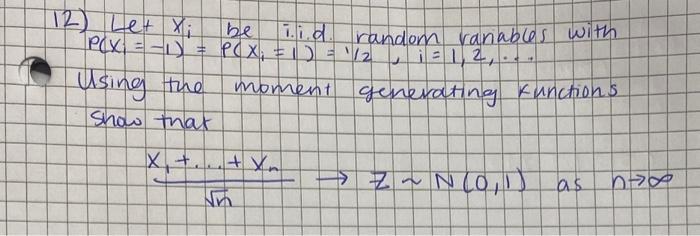 12) Let Xi be i.i.d. random variables with
P(Xi = -1) = P(Xi = 1) = 1/2, i = 1, 2, ...
Using the moment generating functions
show that
X1 + ... + Xn
√n
→ Z ~ N(0,1) as n→∞